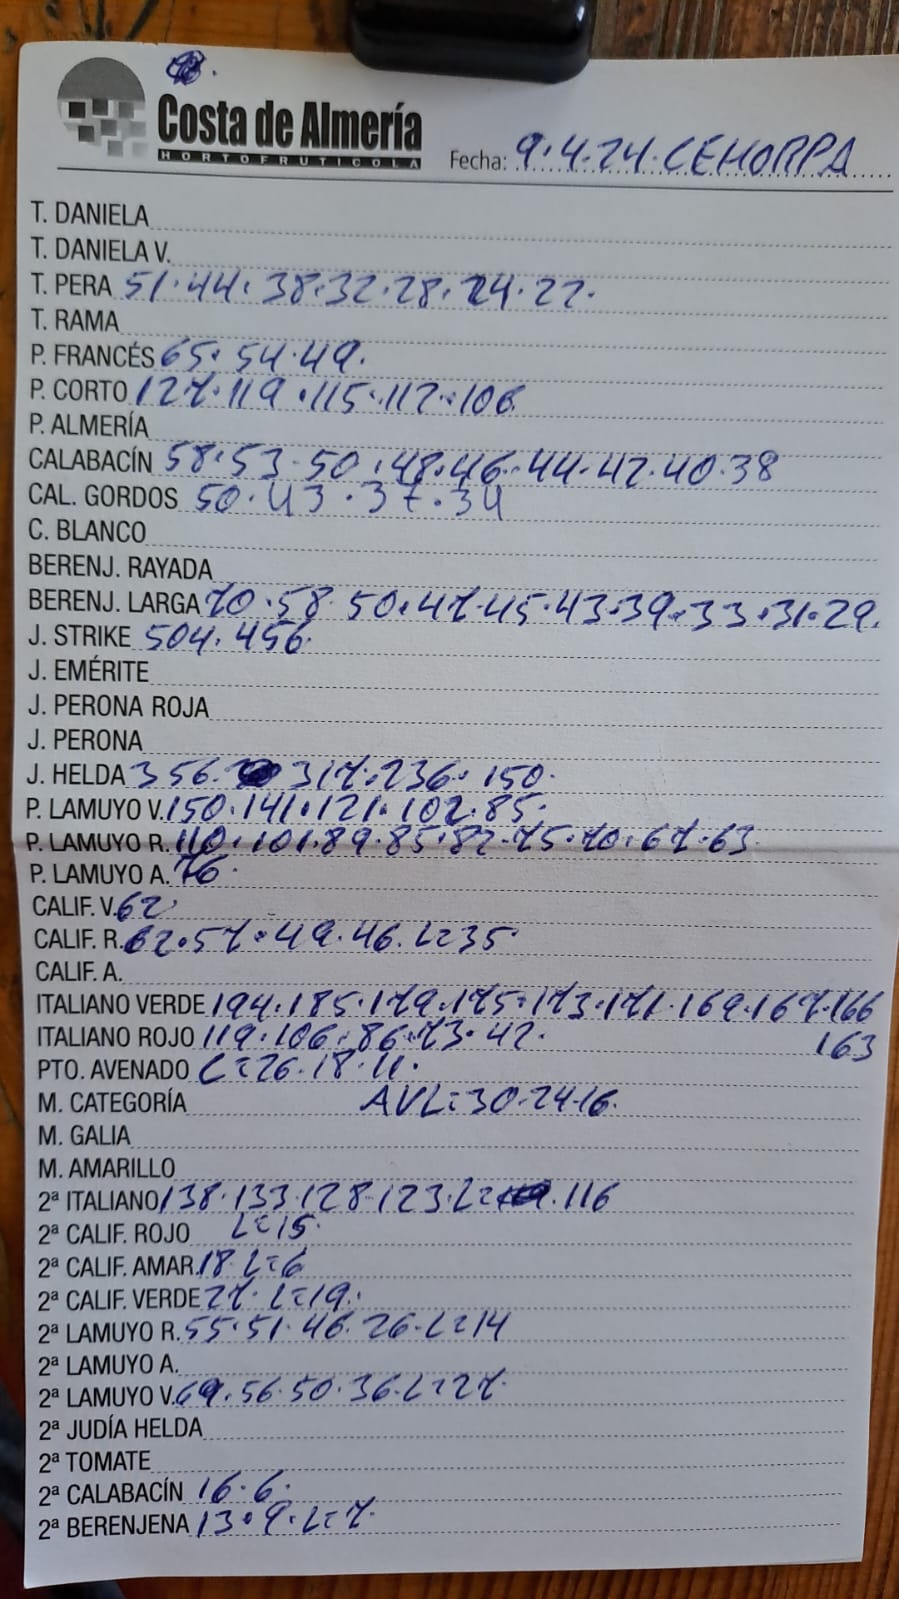 Costa de Almería
HORTOFRUTICOLA
Fecha: 9.4.24. CEHORPA
T. DANIELA
T. DANIELA V.
T. PERA 51.44.38.32.28.24.22.
T. RAMA
P. FRANCÉS 65.54.49.
P. CORTO 127.119.115.112.106
P. ALMERÍA
CALABACÍN 58.53.50.48.46.44.42.40.38
CAL. GORDOS 50.43.37.34
C. BLANCO
BERENJ. RAYADA
BERENJ. LARGA 70.58.50.47.45.43.39.33.31.29.
J. STRIKE 504.456.
J. EMÉRITE
J. PERONA ROJA
J. PERONA
J. HELDA 356. 317.236.150.
P. LAMUYO V. 150.141.121.102.85.
P. LAMUYO R. 110.101.89.85.82.75.70.67.63.
P. LAMUYO A. 76.
CALIF. V. 62
CALIF. R. 62.57.49.46.L=35.
CALIF. A.
ITALIANO VERDE 194.185.179.175.173.171.169.167.166
163
ITALIANO ROJO 119.106.86.73.42.
PTO. AVENADO L=26.18.11.
M. CATEGORÍA AVL=30.24.16.
M. GALIA
M. AMARILLO
2ª ITALIANO 138.133.128.123.L= .116
2ª CALIF. ROJO L=15.
2ª CALIF. AMAR. 18.L=6
2ª CALIF. VERDE 27.L=19.
2ª LAMUYO R. 55.51.46.26.L=14
2ª LAMUYO A.
2ª LAMUYO V. 69.56.50.36.L=27.
2ª JUDÍA HELDA
2ª TOMATE
2ª CALABACÍN 16.6.
2ª BERENJENA 13.9.L=7.